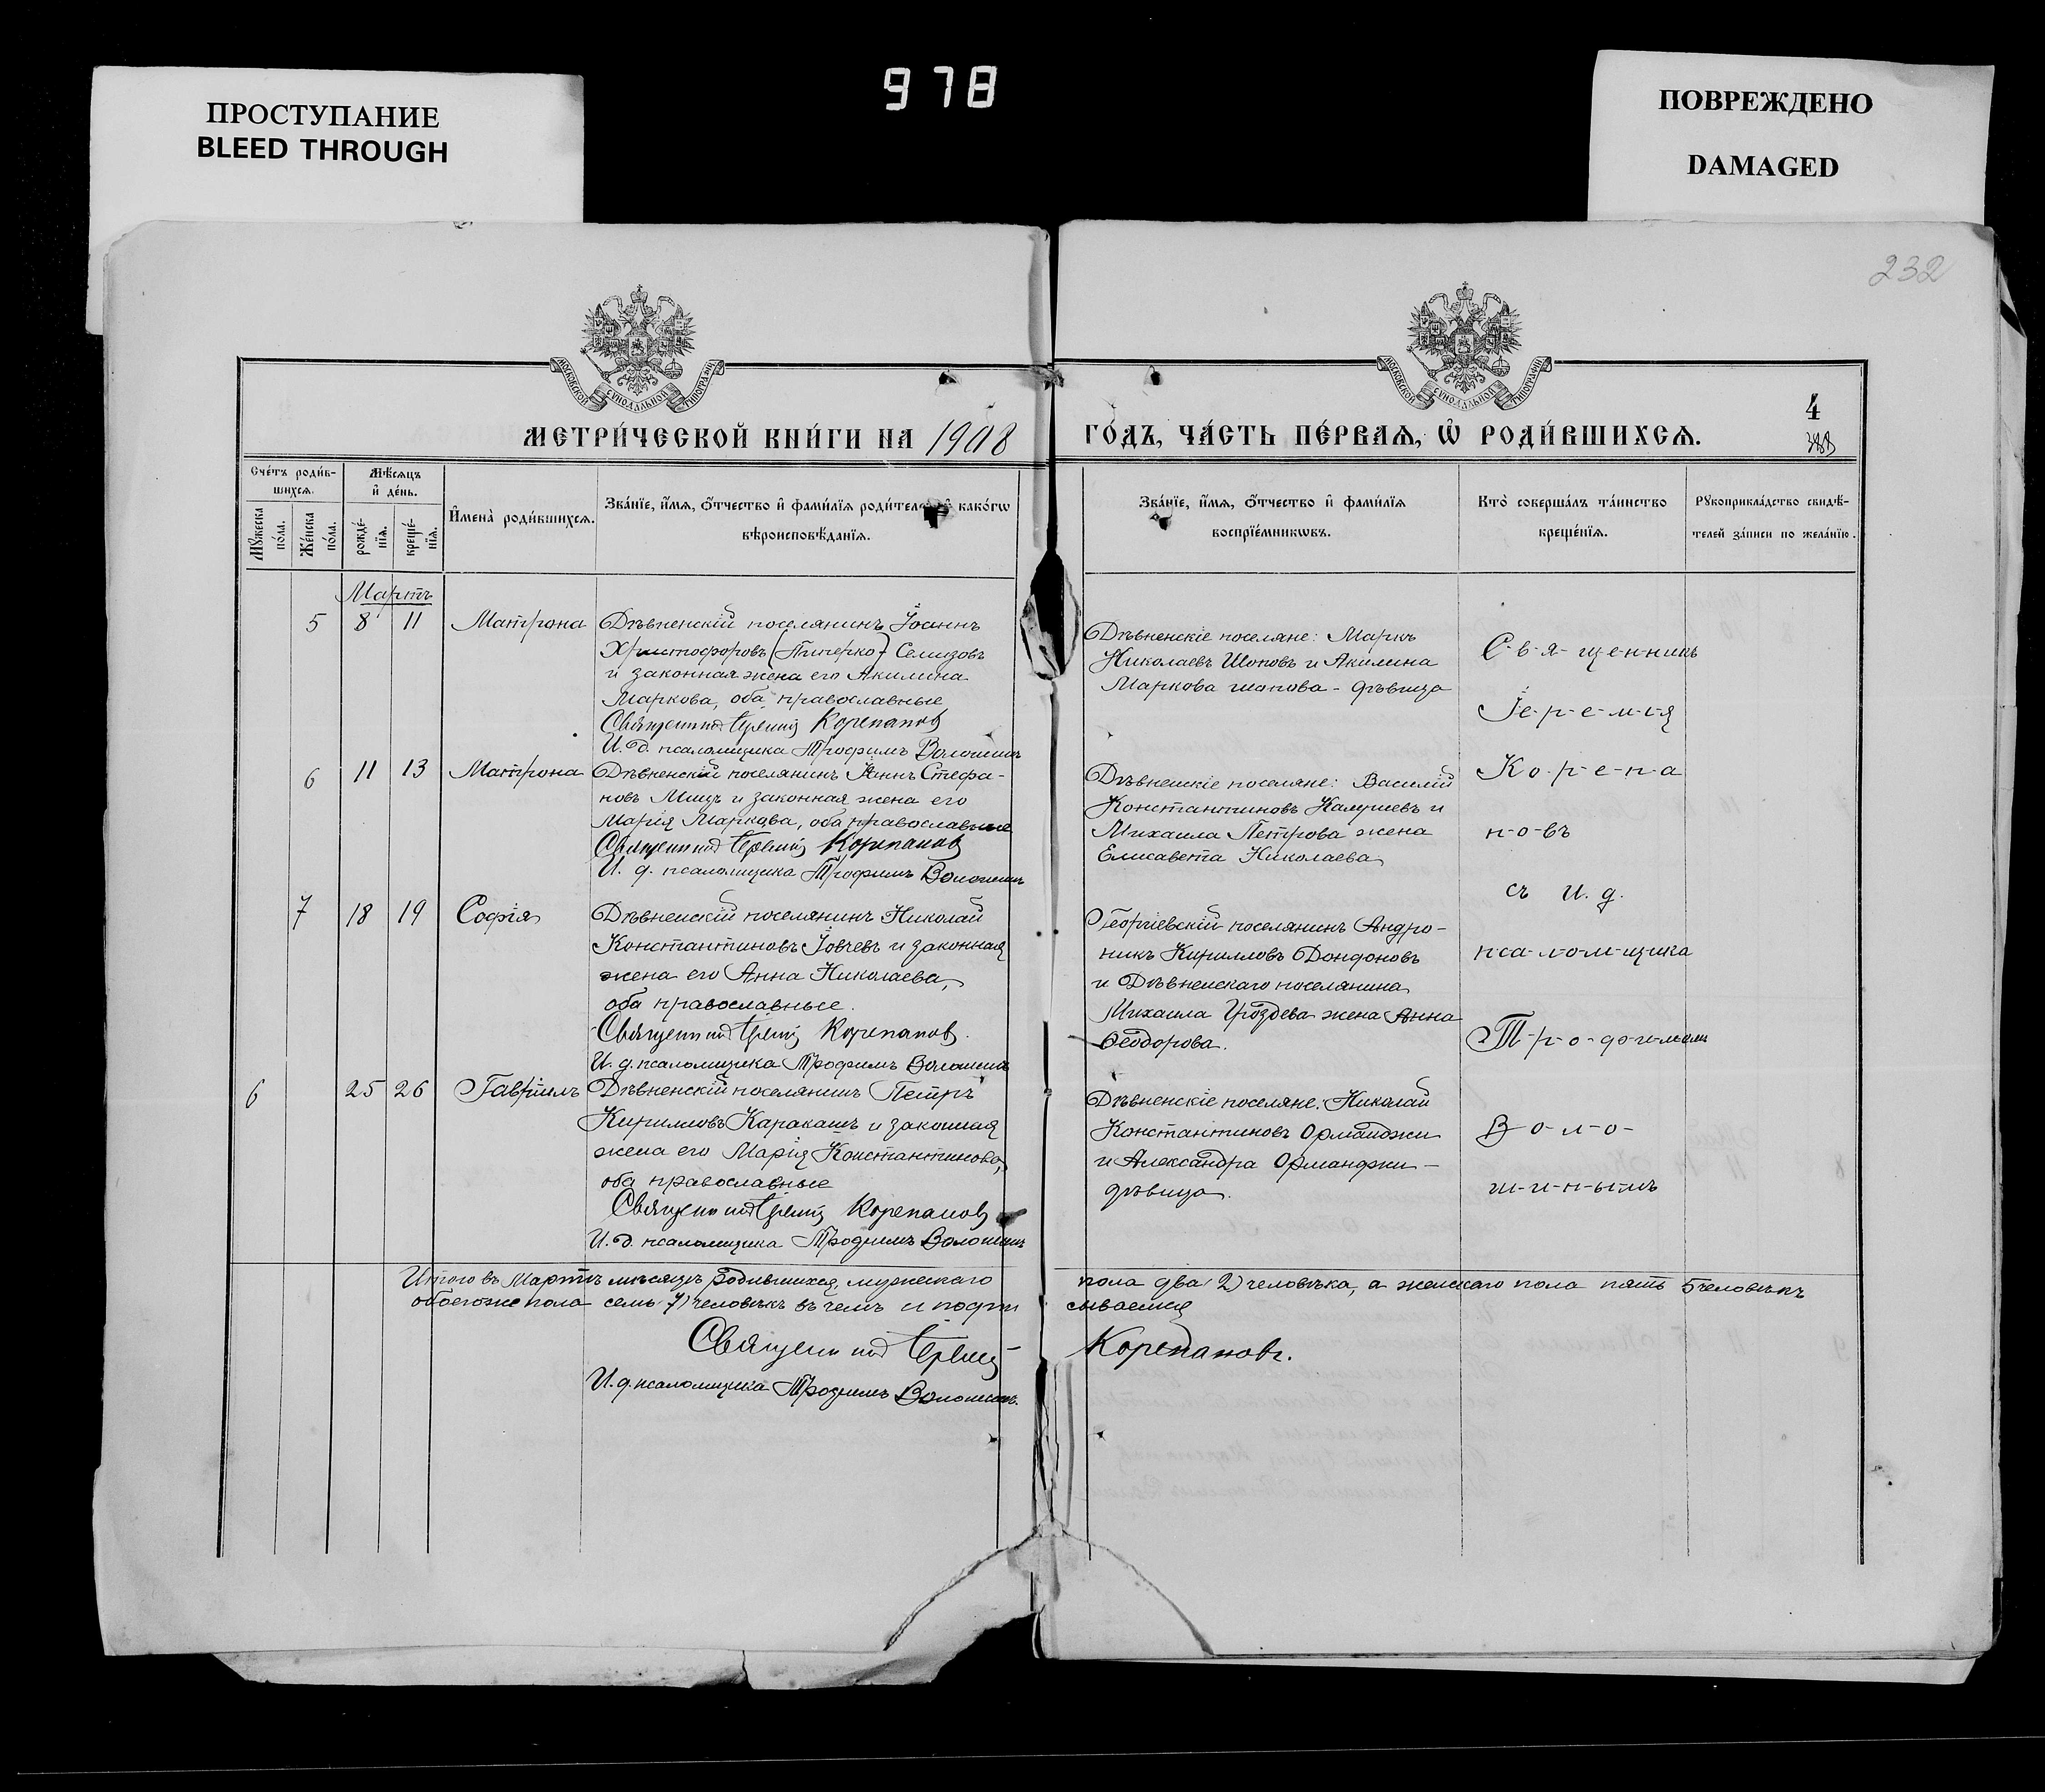 ПРОСТУПАНИЕ
BLEED THROUGH
978
ПОВРЕЖДЕНО
DAMAGED
232
МОСКОВСКОЙ СѴНОДАЛЬНОЙ ТИПОГРАФІИ
МОСКОВСКОЙ СѴНОДАЛЬНОЙ ТИПОГРАФІИ
МЕТРИ́ЧЕСКОЙ КНИ́ГИ НА 1908
ГО́ДЪ, ЧА́СТЬ ПЕ́РВАѦ, Ѽ РОДИ́ВШИХСѦ.
4
Сче́тъ роди́в-
шихсѧ.
Мѣ́сѧцъ
и҆ де́нь.
Мꙋ́жеска
по́ла.
Же́нска
по́ла.
рожде́-
нїѧ.
креще́-
нїѧ.
И҆мена̀ роди́вшихсѧ.
Зва́нїе, и҆́мѧ, ѻ҆́тчество и҆ фами́лїѧ роди́телей и҆ како́гѡ
вѣроисповѣ́данїѧ.
Зва́нїе, и҆́мѧ, ѻ҆́тчество и҆ фами́лїѧ
воспрїе́мникѡвъ.
Кто̀ соверша́лъ та́инство
креще́нїѧ.
Рꙋкоприкла́дство свидѣ́-
телей за́писи по жела́нїю.
Мартъ
5 8 11 Матрона Дѣвненскій поселянинъ Іоаннъ
Христофоровъ (Пичерко) Селизовъ
и законная жена его Акилина
Маркова, оба православные
Священникъ Іеремія Корепановъ
И. д. псаломщика Трофимъ Волошинъ
Дѣвненскіе поселяне: Маркъ
Николаевъ Шоповъ и Акилина
Маркова Шопова - дѣвица
6 11 13 Матрона Дѣвненскій поселянинъ Іоаннъ Стефа-
новъ Мицъ и законная жена его
Марія Маркова, оба православные
Священникъ Іеремія Корепановъ
И. д. псаломщика Трофимъ Волошинъ
Дѣвненскіе поселяне: Василій
Константиновъ и
Михаила Петрова жена
Елисавета Николаева
7 18 19 Софія Дѣвненскій поселянинъ Николай
Константиновъ Іовчевъ и законная
жена его Анна Николаева,
оба православные.
Священникъ Іеремія Корепановъ.
И. д. псаломщика Трофимъ Волошинъ
Георгіевскій поселянинъ Андро-
никъ Кирилловъ Дондоновъ
и Дѣвненскаго поселянина
Михаила Гроздева жена Анна
Ѳеодорова.
6 25 26 Гавріилъ Дѣвненскій поселянинъ Петръ
Кирилловъ Каракашъ и законная
жена его Марія Константинова,
оба православные
Священникъ Іеремія Корепановъ
И. д. псаломщика Трофимъ Волошинъ
Дѣвненскіе поселяне: Николай
Константиновъ Орманджи
и Александра Орманджи -
дѣвица.
С-в-я-щ-е-н-никъ
Іе-р-е-м-і-я
К-о-р-е-п-а
н-о-въ
съ И. д.
пса-л-о-м-щика
Т-р-о-ф-и-момъ
В-о-л-о-
ш-и-н-ы-мъ
Итого въ Мартѣ мѣсяцѣ родившихся, мужескаго пола два (2) человѣка, а женскаго пола пять 5 человѣкъ
обоегоже пола семь (7) человѣкъ въ чемъ и подписываемся
Священникъ Іеремія Корепановъ.
И. д. псаломщика Трофимъ Волошинъ.